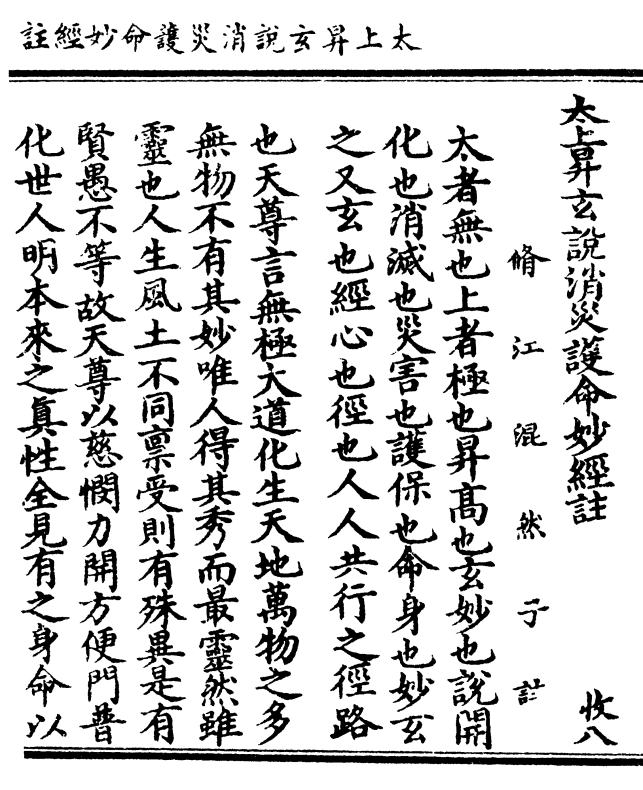 太上昇玄說消災護命妙經註
太上昇玄說消災護命妙經註 收八
脩江混然子註
太者無也上者極也昇高也玄妙也說開
化也消滅也災害也護保也命身也妙玄
之又玄也經心也徑也人人共行之徑路
也天尊言無極大道化生天地萬物之多
無物不有其妙唯人得其秀而最靈然雖
靈也人生風土不同禀受則有殊異是有
賢愚不等故天尊以慈憫力開方便門普
化世人明本來之眞性全見有之身命以